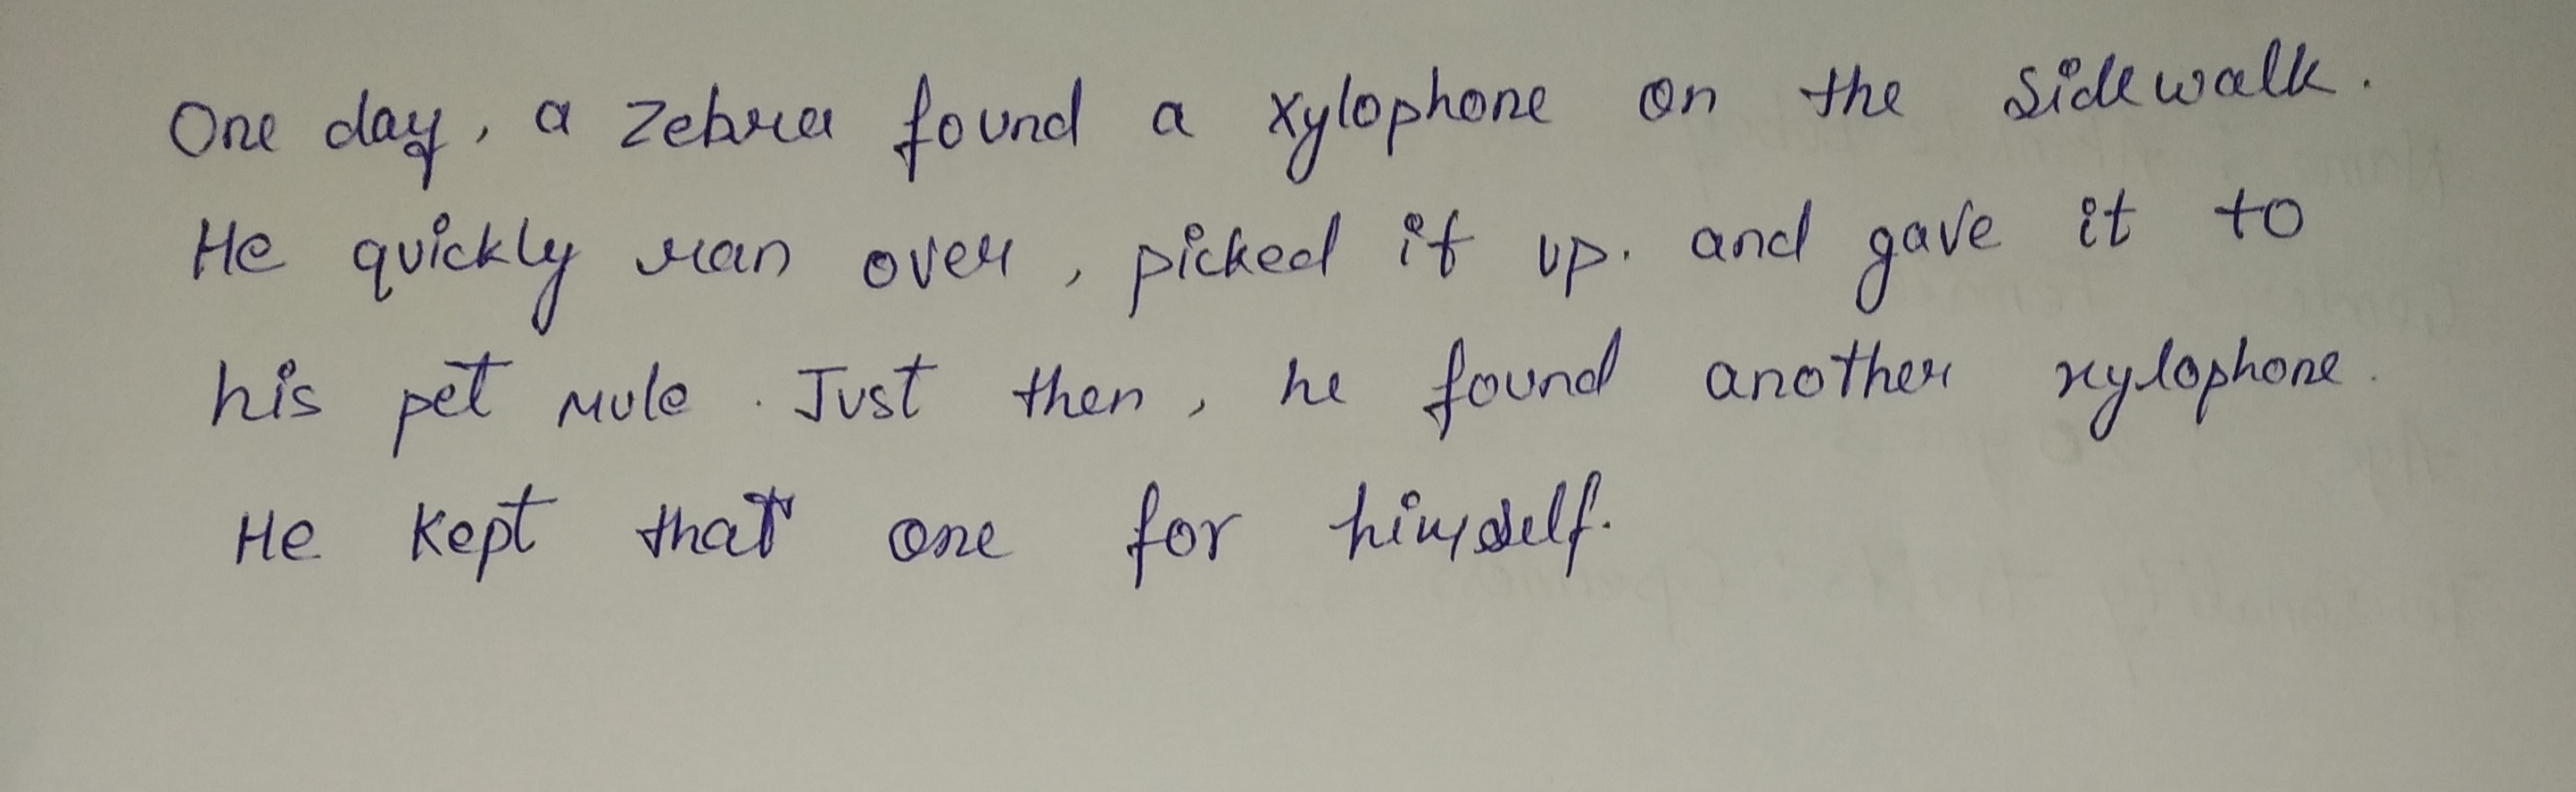 One day, a zebra found a xylophone on the sidewalk.
He quickly ran over, picked it up. and gave it to
his pet mule. Just then, he found another xylophone.
He kept that one for himself.